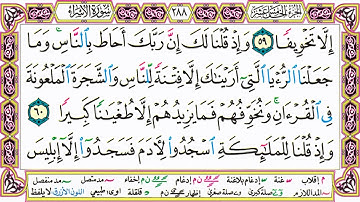 الجزء الخامس عشر ٢٨٨ سورة الإسراء
إِلَّا تَخْوِيفًا ٥٩ وَإِذْ قُلْنَا لَكَ إِنَّ رَبَّكَ أَحَاطَ بِالنَّاسِ ۚ وَمَا
جَعَلْنَا الرُّءْيَا الَّتِي أَرَيْنَاكَ إِلَّا فِتْنَةً لِلنَّاسِ وَالشَّجَرَةَ الْمَلْعُونَةَ
فِي الْقُرْءَانِ ۚ وَنُخَوِّفُهُمْ فَمَا يَزِيدُهُمْ إِلَّا طُغْيَانًا كَبِيرًا ٦٠
وَإِذْ قُلْنَا لِلْمَلَائِكَةِ اسْجُدُوا لِآدَمَ فَسَجَدُوا إِلَّا إِبْلِيسَ